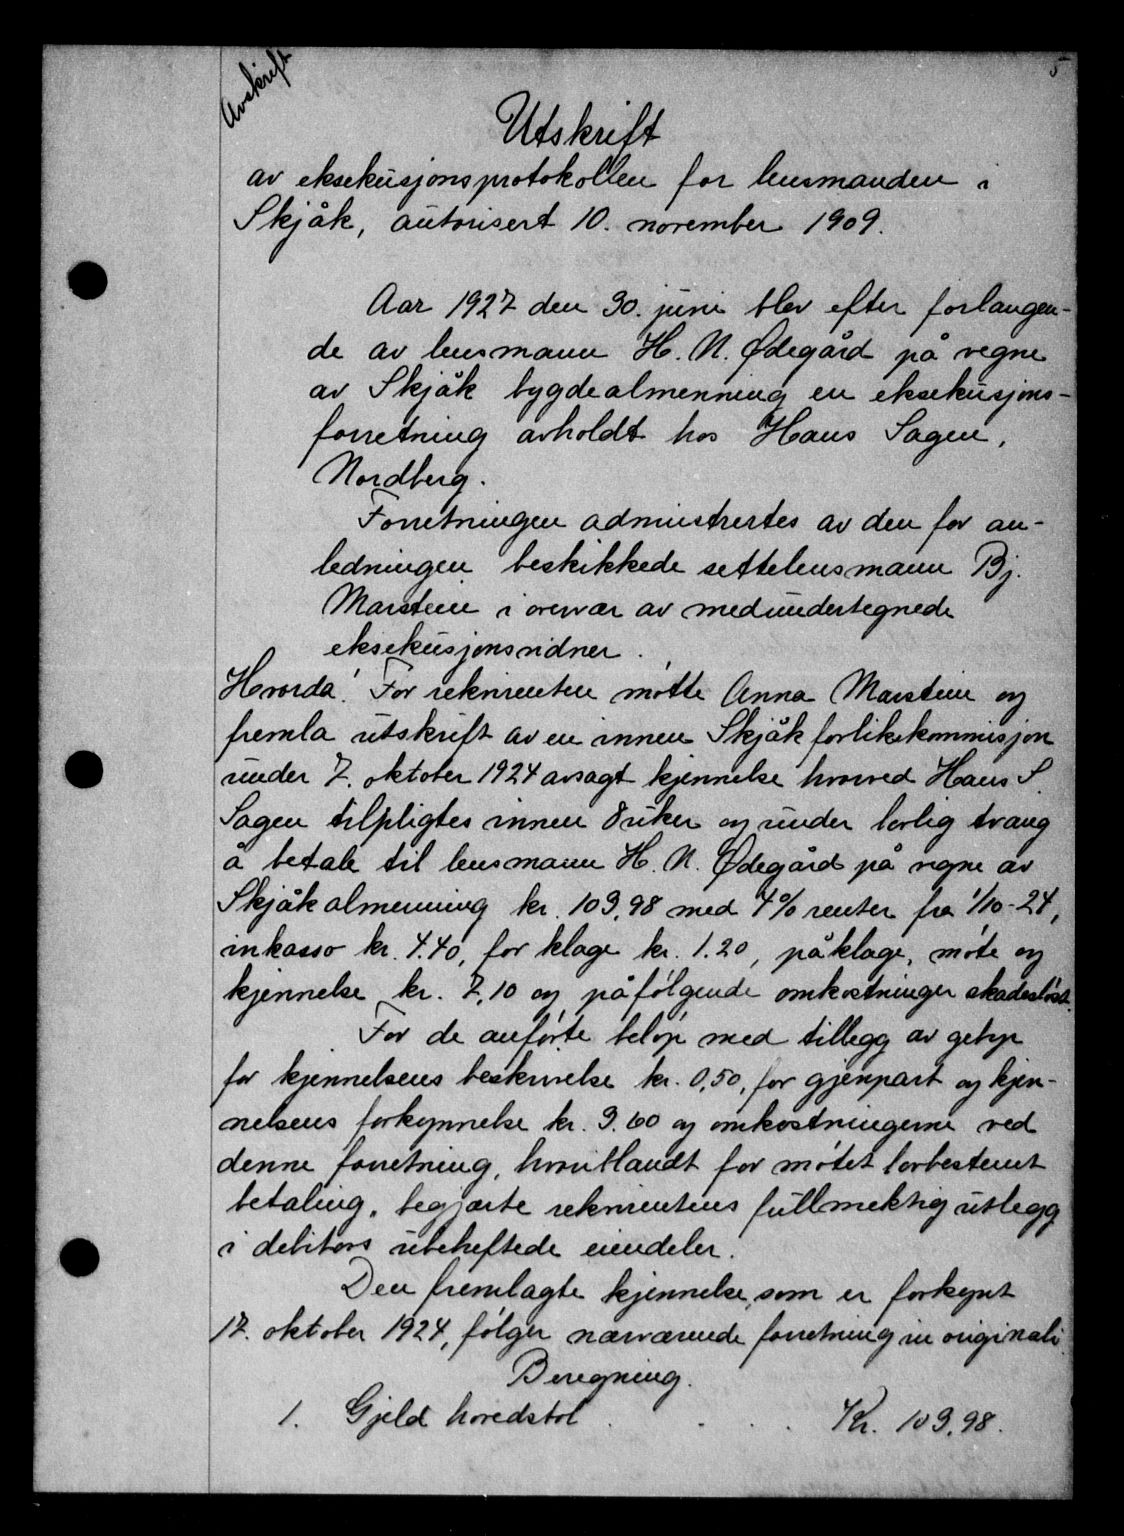 Avskrift
5
Utskrift
av eksekusjonsprotokollen for lensmanden i
Skjåk, autorisert 10. november 1909.
Aar 1927 den 30. juni blev efter forlangen-
de av lensmann H. N. Ødegård på vegne
av Skjåk bygdealmenning en eksekusjons-
forretning avholdt hos Hans Sagen,
Nordberg.
Forretningen administrertes av den for an-
ledningen beskikkede settelensmann Bj.
Marstein i overvær av medundertegnede
eksekusjonsvidner.
Hvorda! For rekvirenten møtte Anna Marstein og
fremla utskrift av en innen Skjåk forlikskommisjon
under 7. oktober 1924 avsagt kjennelse hvorved Hans S.
Sagen tilpligtes innen 8 uker og under lovlig tvang
å betale til lensmann H. N. Ødegård på vegne av
Skjåk almenning kr. 103,98 med 4% renter fra 1/10-24,
inkasso kr. 4.40, for klage kr. 1.20, påklage, møte og
kjennelse kr. 7,10 og påfølgende omkostninger skadesløst.
For de anførte beløp med tillegg av gebyr
for kjennelsens beskrivelse kr. 0,50, for gjenpart og kjen-
nelsens forkynnelse kr. 3.60 og omkostningerne ved
denne forretning, hvoriblandt for møtet lovbestemt
betaling, begjærte rekvirentens fullmektig utlegg
i debitors ubeheftede eiendeler.
Den fremlagte kjennelse, som er forkynt
17. oktober 1924, følger nærværende forretning in originali.
Beregning.
1. Gjeld hovedstol . . . . Kr. 103,98.